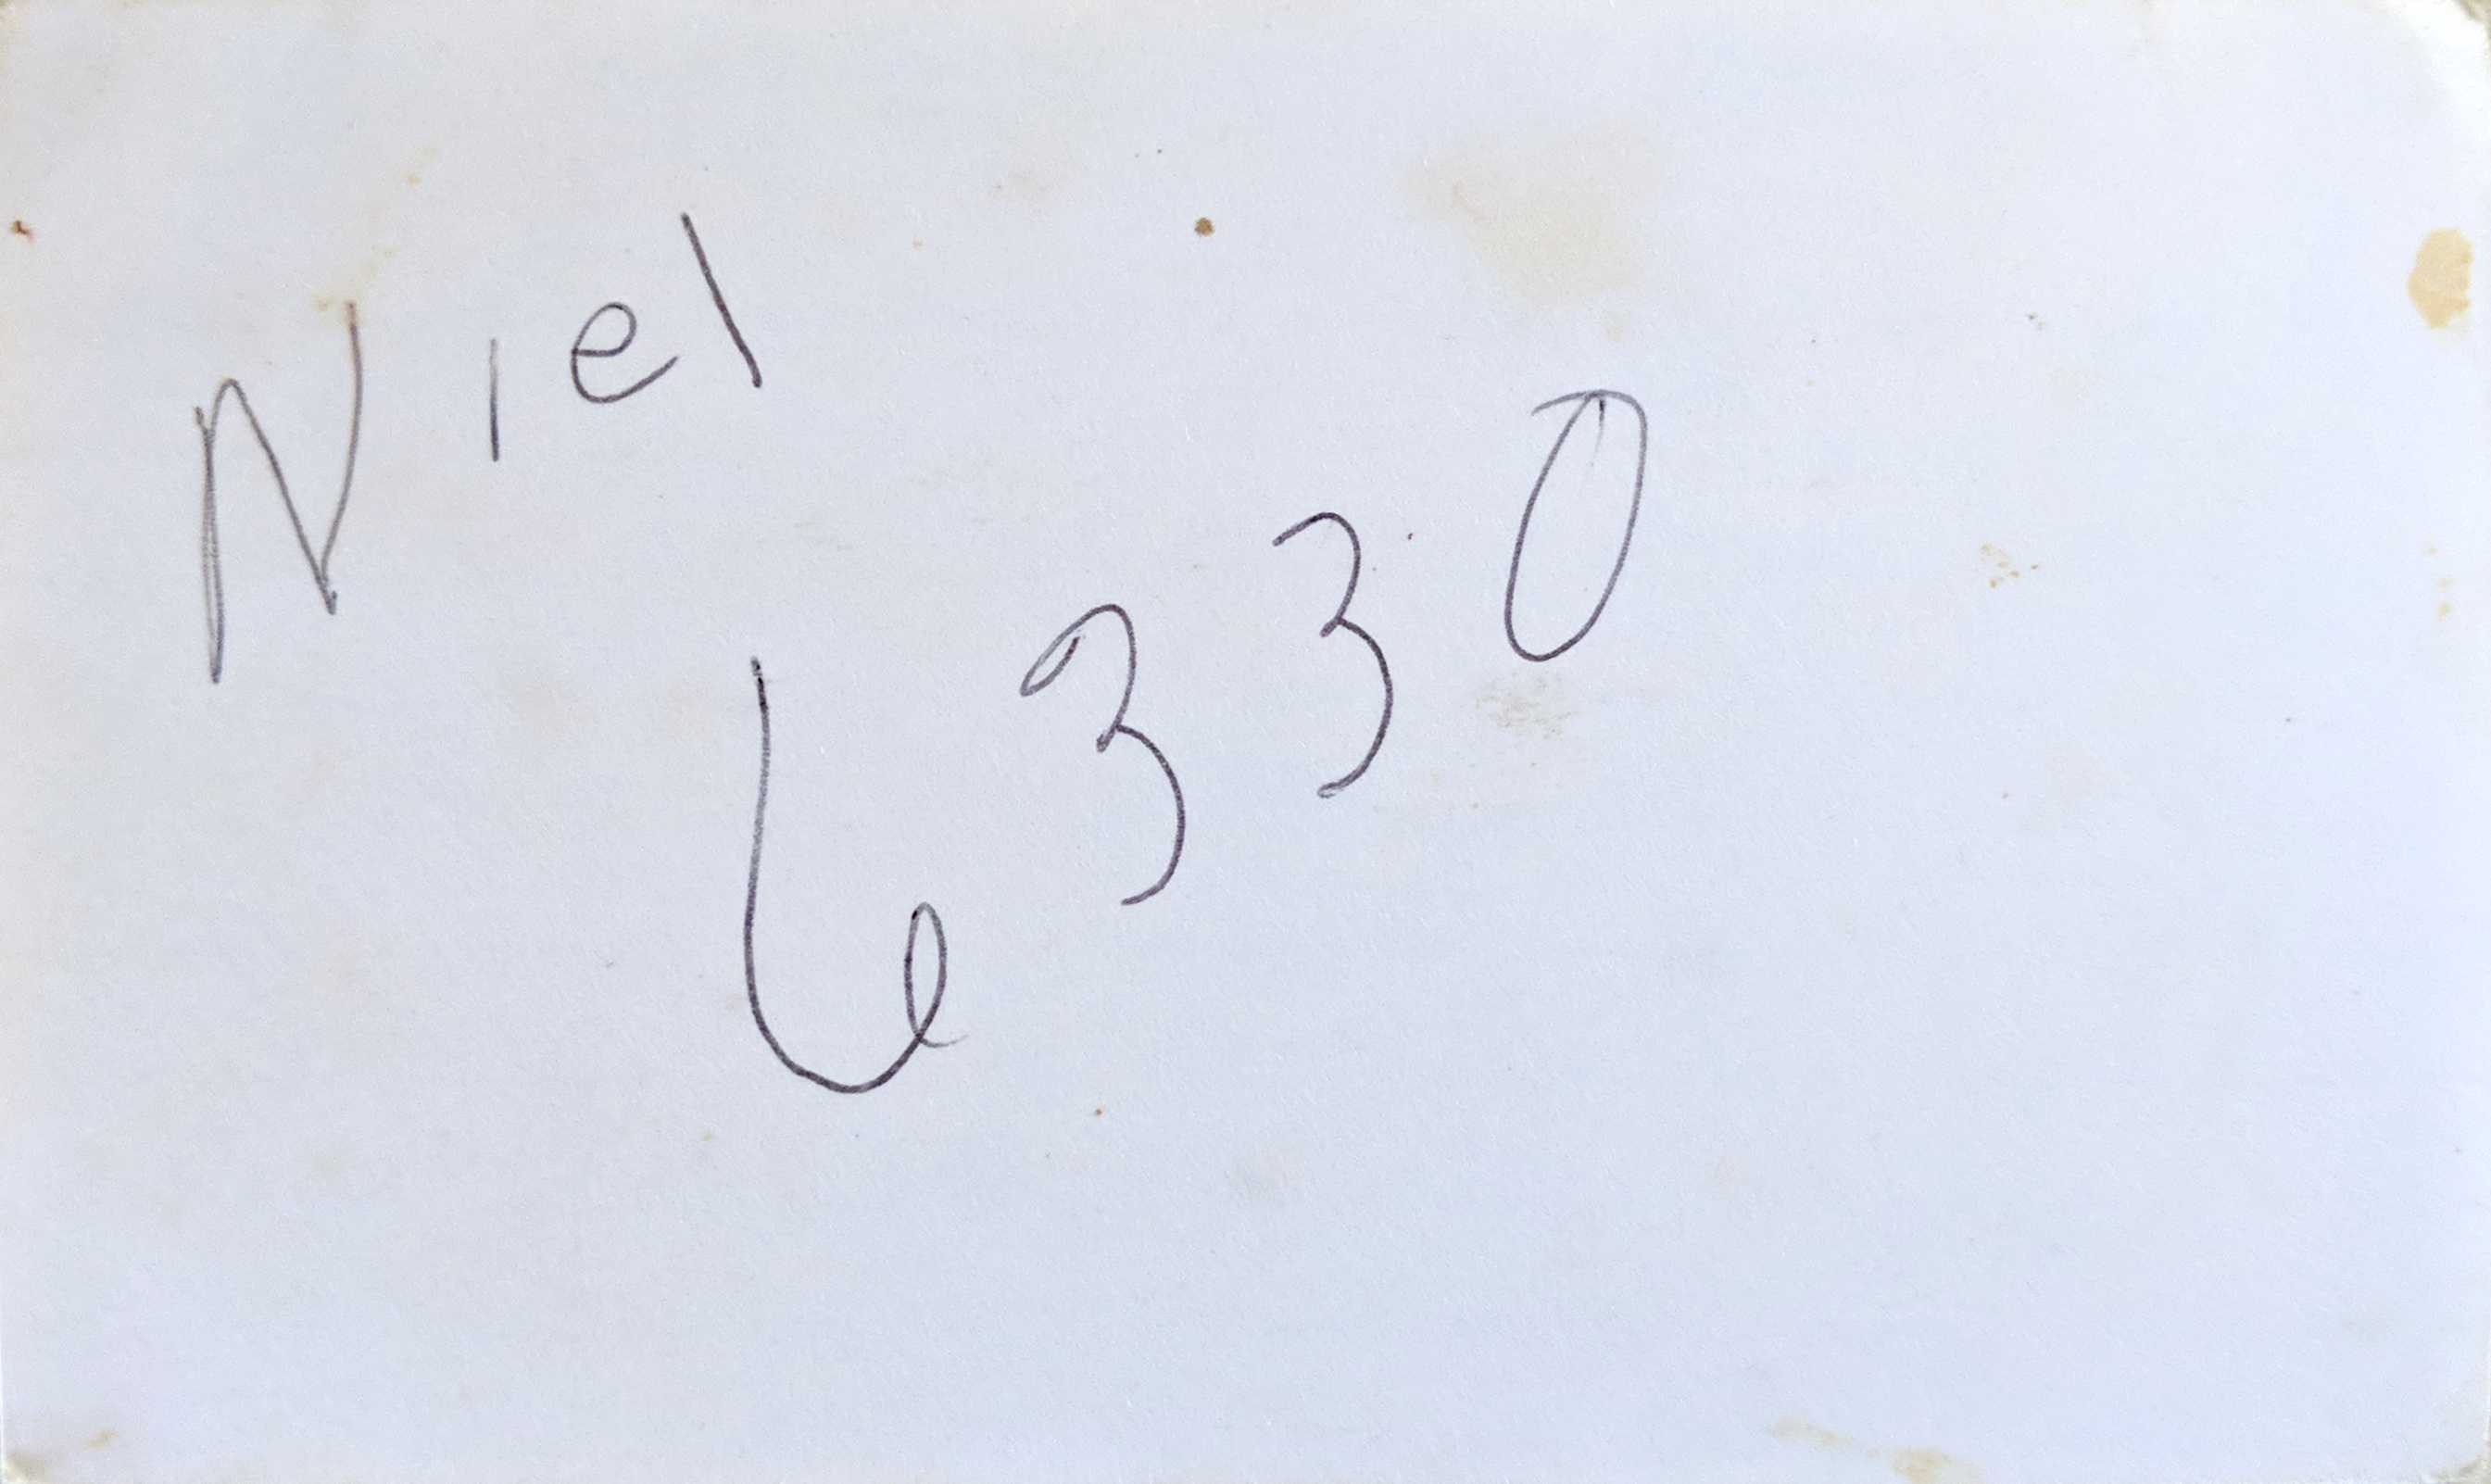 Niel
6330